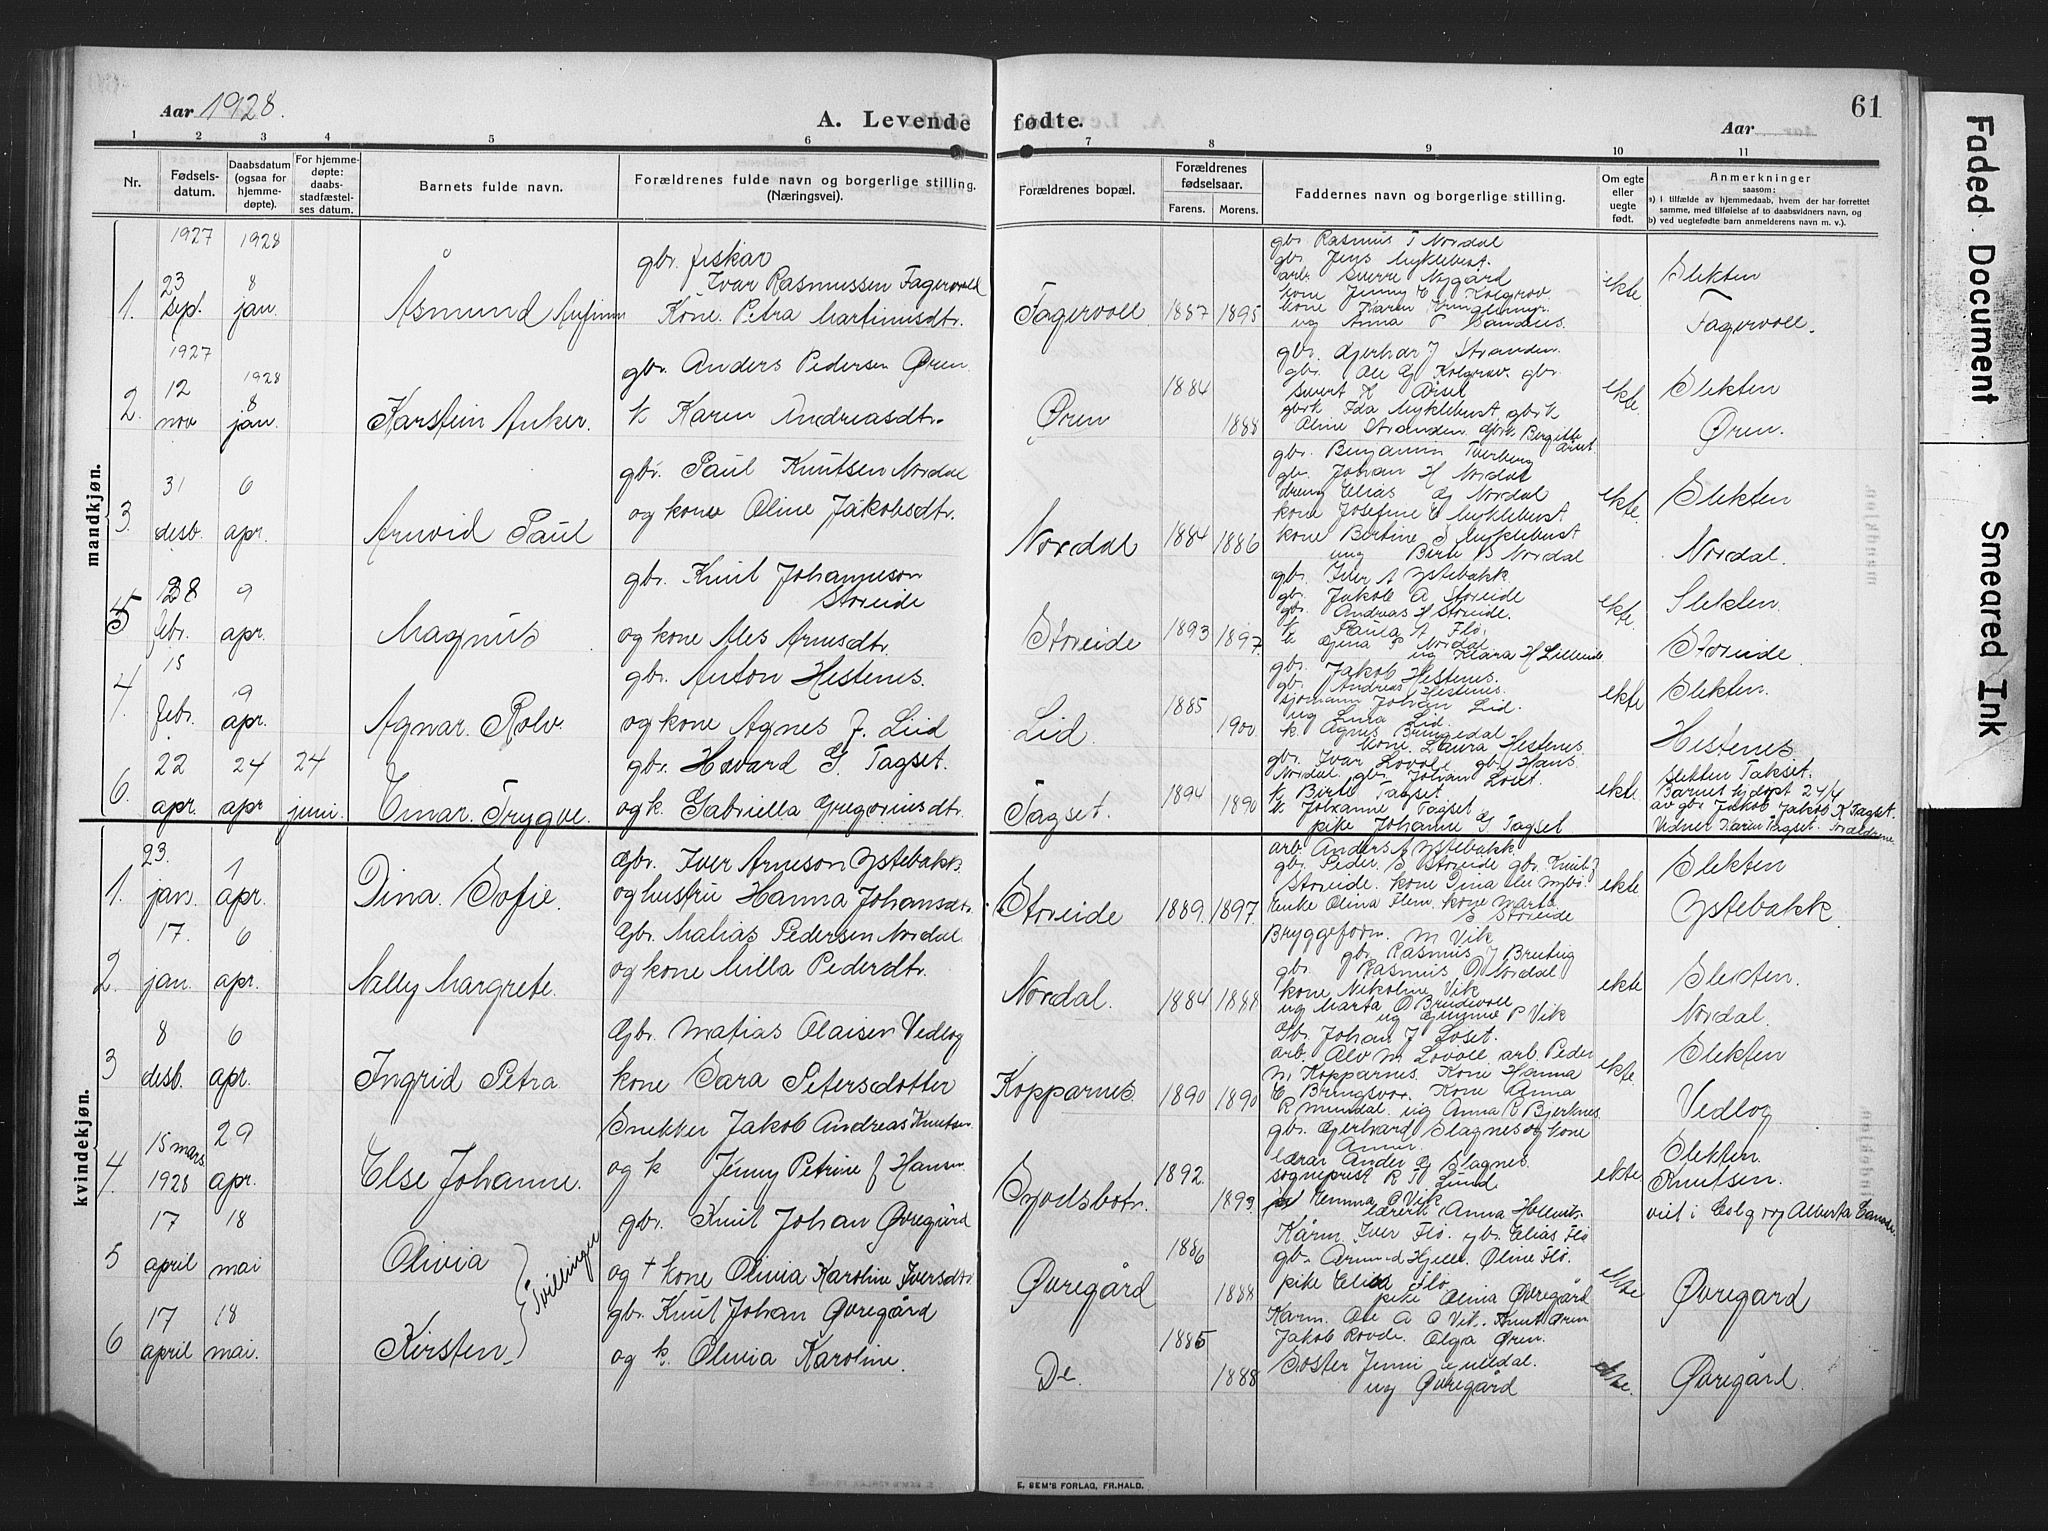 Aar 1928.
A. Levende fødte.
Aar
61
1 2 3 4 5 6 7 8 9 10 11
Nr.
Fødsels-
datum.
Daabsdatum
(ogsaa for
hjemme-
døpte).
For hjemme-
døpte:
daabs-
stadfæstel-
ses datum.
Barnets fulde navn.
Forældrenes fulde navn og borgerlige stilling.
(Næringsvei).
Forældrenes bopæl.
Forældrenes
fødselsaar.
Farens. Morens.
Faddernes navn og borgerlige stilling.
Om egte
eller
uegte
født.
Anmerkninger
saasom:
a) i tilfælde av hjemmedaab, hvem der har forrettet
samme, med tilføielse af to daabsvidners navn, og
b) ved uegtefødte barn anmelderens navn m. v.).
mandkjøn.
1.
1927
23
sep.
1928
8
jan.
Åsmund Arfinn
gbr. fiskar
Ivar Rasmussen Fagervoll
Kone. Petra Martinusdtr.
Fagervoll
1887 1895
gbr. Rasmus T Nordal
gbr. Jens Myklebust.
arb. Sverre Nygård
kone Jenny C Kolgrov
kone Karen
ug Anna P Sandnes.
ekte
Slekten
Fagervoll.
2.
1927
12
nov
1928
8
jan.
Karstein Anker.
gbr. Anders Pedersen Øren.
k Karen Andreasdtr.
Øren
1884
1888
gbr. Gjerhar J Stranden.
gbr. Ole G Kolgrov. gbr.
Sivert K Ørsel
gbrk Ida Myklebust, gbrk
Oline Stranden gbrk Bergitte
ekte
Slekten
Øren.
3.
31
desb.
6
apr.
Arnvid Paul
gbr. Paul Knutsen Nordal
og kone Oline Jakobsdtr.
Nordal
1884 1886
gbr. Benjamin Tverberg
gbr. Johan H Nordal
dreng Elias G Nordal
kone Josefine E Myklebust
kone Bertine S Myklebust
ung Berte S Nordal
ekte
Slekten
Nordal.
5
28
febr.
9
apr.
Magnus
gbr. Knut Johanneson
Storeide
og kone Ales Arnesdtr.
Storeide
1893 1897.
gbr. Iver A Ystebakk
gbr. Jakob A Storeide
gbr. Andreas H Storeide.
k Paula A Flø.
k. Gjina P Nordal
ug Klara H Lillenes
ekte.
Slekten.
Storeide.
4.
15
febr.
9
apr.
Agnar. Rolv.
gbr. Anton Hestenes.
og kone Agnes J. Liid
Lid.
1885
1900
gbr. Jakob Hestenes.
gbr. Andreas Hestenes.
sjømann Johan Lid.
ug Lina Lid.
k. Agnes Bringedal
kone. Laura Hestenes
ekte
Slekten.
Hestenes
6.
22
apr.
24
apr
24
juni.
Einar. Trygve.
gbr. Hævard G. Tagset.
og k. Gabriella Gregoriusdtr.
Tagset.
1894 1890
gbr. Ivar Lovoll gbr Hans
Nordal. gbr. Johan Loset.
k Birte Tagset
k Johanne Tagset
pike Johanne G Tagset
ekte.
Slekten Takset.
Barnet hjdøpt 24/4
av gbr Jakob Jakob K Tagset.
Vidner Karin Tagset. Foreldrene
kvindekjøn.
1.
23.
jan.
1
apr.
Dina. Sofie.
Gbr. Iver Arneson Ystebakk.
og hustru Hanna Johansdtr.
Storeide
1889. 1897.
arb. Anders A Ystebakk.
gbr. Peder S Storeide gbr. Knut J
Storeide. kone Dina
Enke Olina Flem. kone Marte
S Storeide
ekte
Slekten
Ystebakk.
2.
17.
jan.
6
apr.
Nelly Margrete.
Gbr. Matias Pedersen Nordal.
og kone Milla Pedersdtr.
Nordal.
1884 1888
Bryggeform. M Vik
gbr. Rasmus J Bruteig
gbr. Rasmus O Nordal
kone Nikoline Vik
ug Marta O Brudevoll
ug Gjinnine P Vik
ekte
Slekten.
Nordal.
3
8
desb.
6
apr.
Ingrid Petra
Gbr. Matias Olaisen Vedlog
kone Sara Petersdotter
Kopparnes.
1890 1890
Gbr. Johan J Loset.
arb. Alv M Lovoll. arb. Peder
M Kopparnes. Kone Hanna
C Bringsvor. Kone Anna
R Mundal. ug Anna R Bjerknes.
ekte.
Slekten
Vedlog
4.
15 mars.
1928
29
apr.
Else Johanne.
Snekker Jakob Andreas Knutsen
og k Jenny Petrine f Hansen
Syvdsbotn.
1892.
1893.
gbr. Gjerhard Slagnes og kone
Anna
lærar Ander G Slagnes.
sogneprest R H Lund
Emma O Vik
Anna
ekte
Slekten.
Knutsen.
viet i Calgary Alberta Canada.
5
17
april
18
mai
Olivia
Tvillinger
gbr. Knut Johan Øvregård
og + kone Olivia Karoline Iversdtr
Øvregård
1886
1888
Kårm. Iver Flø. gbr. Elias Flø
gb. Hjelle. Oline Flø.
pike Flø
pike Olina Øvregård
ekte
Øvregard
6
17
april
18
mai.
Kirsten
gbr. Knut Johan Øvregård
og k. Olivia Karoline.
De.
1885
1888
Karm. Ole A O Vik. Knut Øren.
Jakob Rovde. Olga Øren.
Søster Jenni
ug Øvregård
ekte.
Øvregård.
E. SEM'S FORLAG, FR.HALD.
Faded Document
Smeared Ink